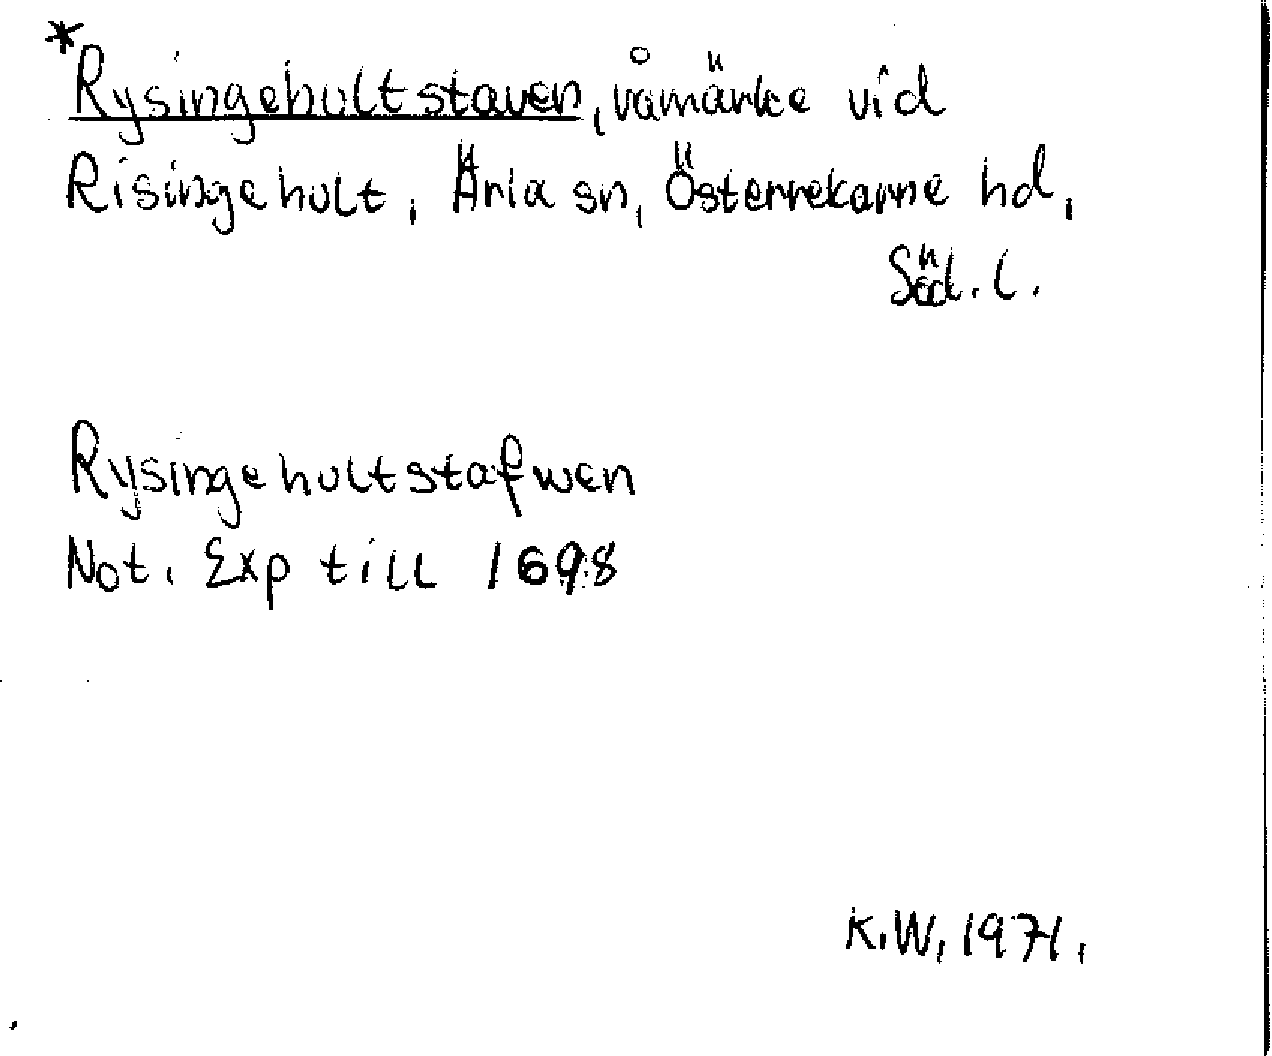 *Rysingehultstaven, råmärke vid
Risingehult, Ärla sn, Österrekarne hd,
Söd. l.
Rysingehultstafwen
Not. Exp till 1698
K.W, 1971.